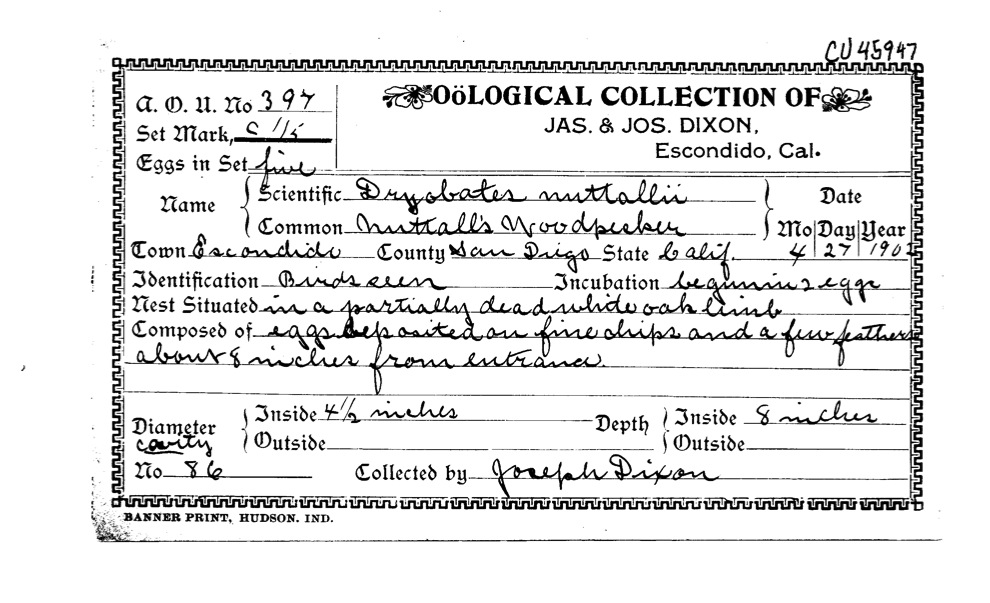 CU45947
A. O. U. No 397
OöLOGICAL COLLECTION OF
Set Mark, C 1/5
JAS. & JOS. DIXON,
Eggs in Set five
Escondido, Cal.
Name Scientific Dryobates nuttallii Date
Common Nuttall's Woodpecker Mo Day Year
Town Escondido County San Diego State Calif. 4 27 1902
Identification Birds seen Incubation begun in 2 eggs
Nest Situated in a partially dead white oak limb
Composed of eggs deposited on fine chips and a few feathers
about 8 inches from entrance.
Diameter cavity Inside 4 1/2 inches Depth Inside 8 inches
Outside Outside
No 86 Collected by Joseph Dixon
BANNER PRINT, HUDSON. IND.